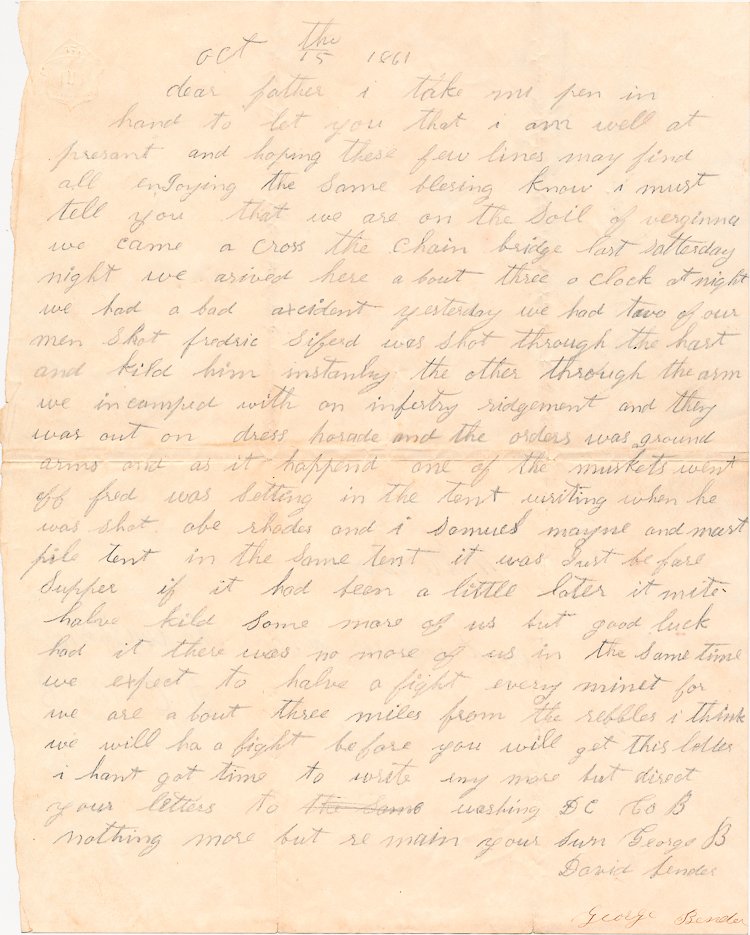 oct 15 the 1861
dear father i take my pen in
hand to let you that i am well at
presant and hoping these few lines may find
all enJoying the same blesing know i must
tell you that we are on the soil of verginna
we came a cross the chain bridge last satterday
night we arived here a bout three o clock at night
we had a bad axident yesterday we had two of our
men shot fredric Siferd was shot through the hart
and kild him instantly the other through the arm
we incamped with an infertry ridgement and they
was out on dress parade and the orders was ground
arms and as it happend one of the muskets went
off fred was setting in the tent writing when he
was shot abe rhodes and i samuel mayne and mart
tent in the same tent it was Just be fare
supper if it had been a little later it mite
halve kild some more of us but good luck
had it there was no more of us in the same time
we expect to halve a fight every minet for
we are a bout three miles from the rebbles i think
we will ha a fight be fare you will get this letter
i hant got time to write iny more but direct
your letters to the same washing DC Co B
nothing more but re main your sun George B
David Bender
George Bender